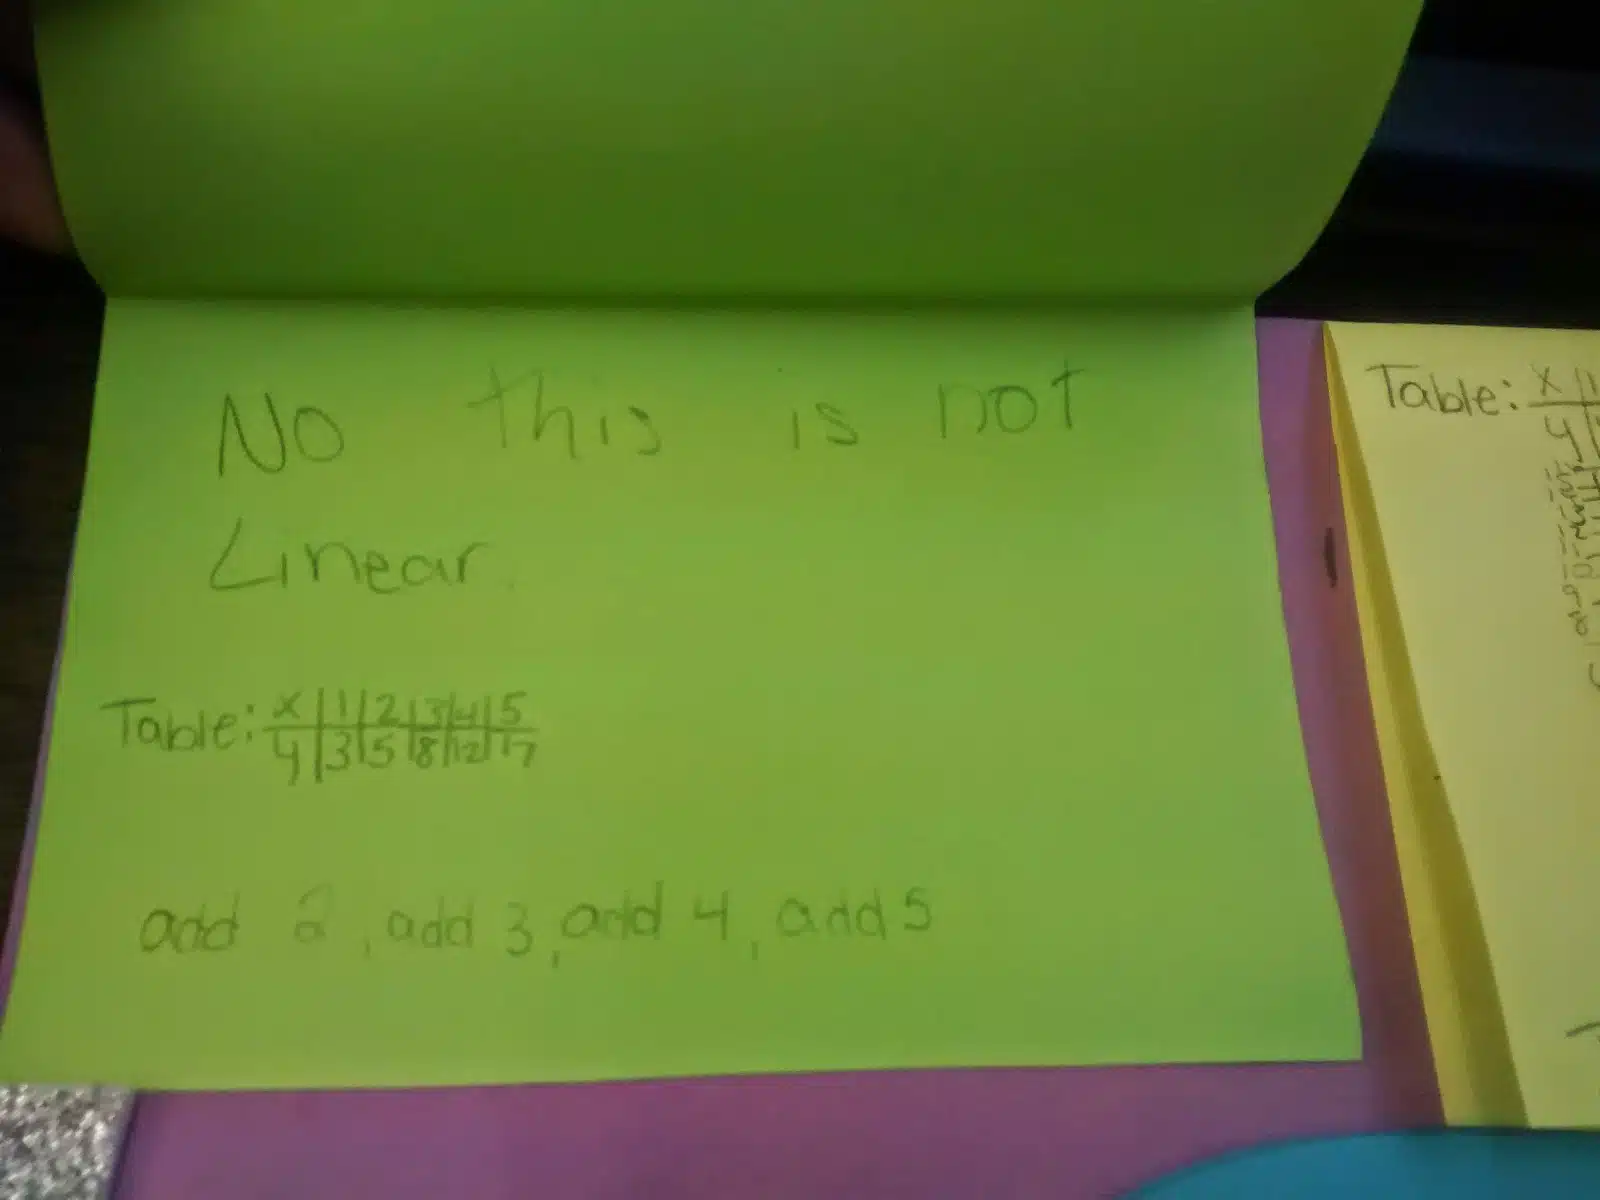 No this is not
Linear.
Table: x | 1 | 2 | 3 | 4 | 5
y | 3 | 5 | 8 | 12 | 17
add 2, add 3, add 4, add 5
Table: x | 1
y